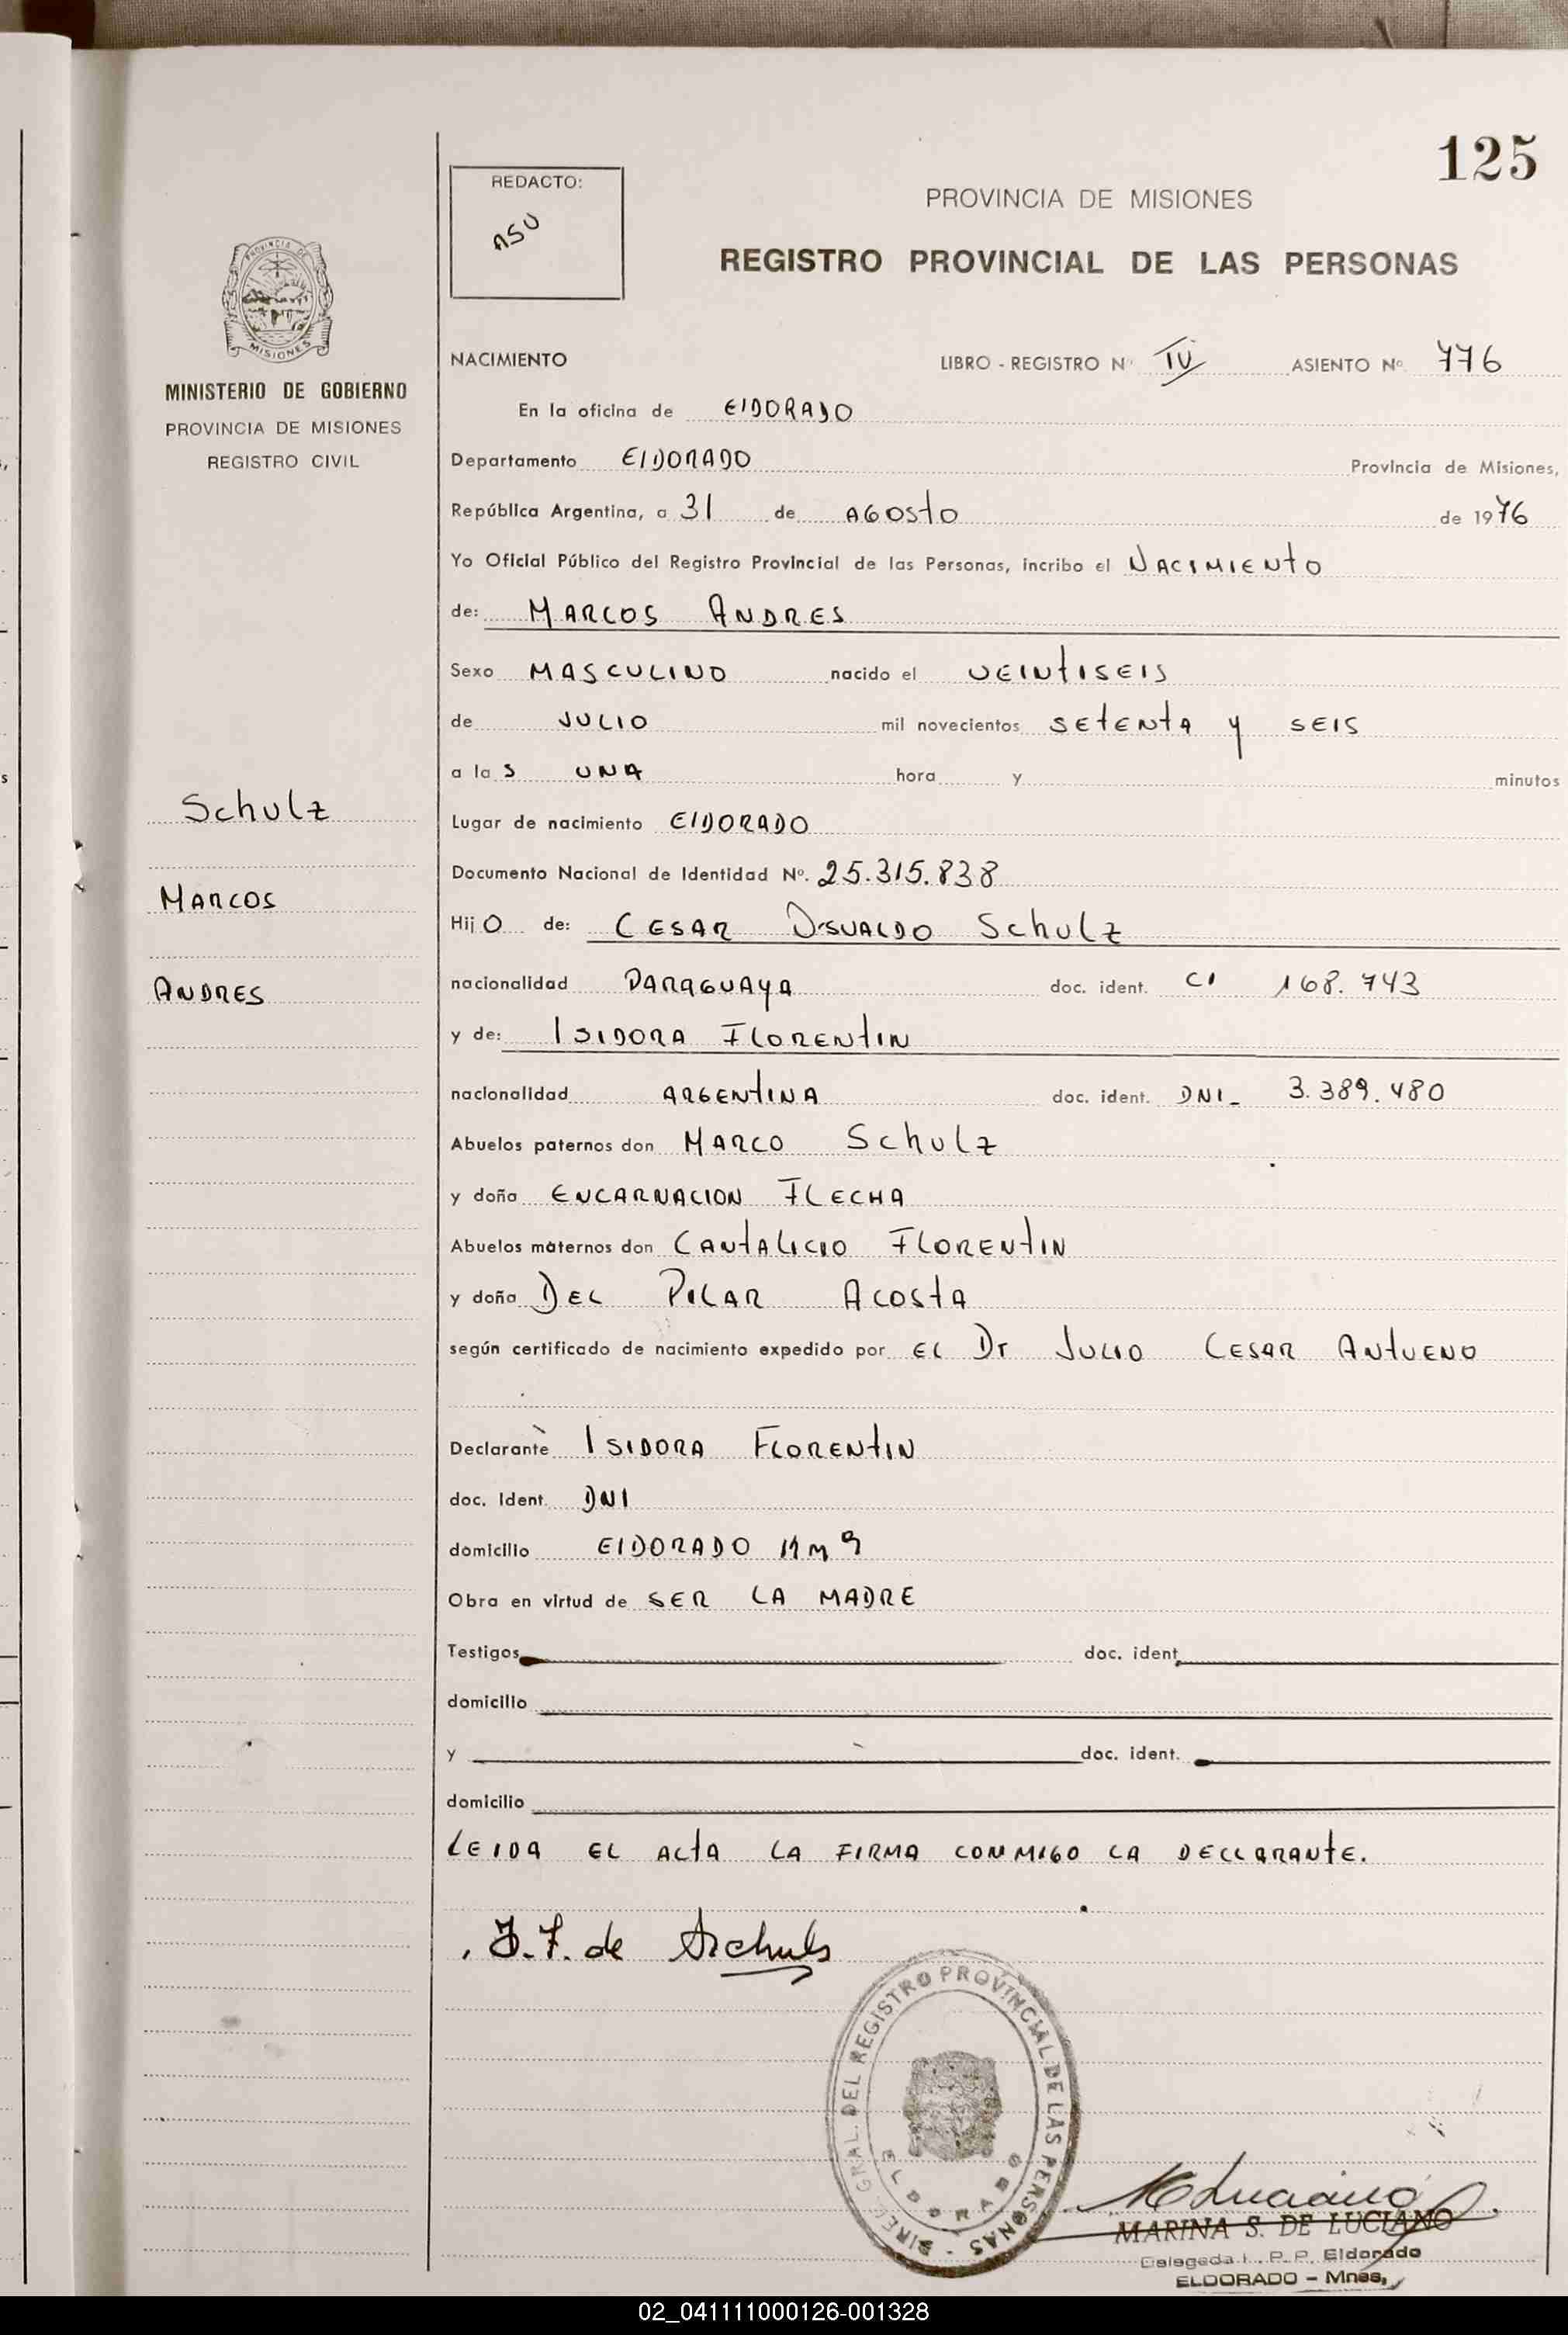 125
REDACTO:
ASU
PROVINCIA DE MISIONES
REGISTRO PROVINCIAL DE LAS PERSONAS
PROVINCIA DE
MISIONES
MINISTERIO DE GOBIERNO
PROVINCIA DE MISIONES
REGISTRO CIVIL
Schulz
MARCOS
ANDRES
NACIMIENTO LIBRO - REGISTRO Nº IV ASIENTO Nº 776
En la oficina de ElDORADO
Departamento ElDORADO Provincia de Misiones,
República Argentina, a 31 de AGOSTO de 1976
Yo Oficial Público del Registro Provincial de las Personas, incribo el NACIMIENTO
de: MARCOS ANDRES
Sexo MASCULINO nacido el VEINTISEIS
de JULIO mil novecientos SETENTA y SEIS
a las UNA hora y minutos
Lugar de nacimiento ElDORADO
Documento Nacional de Identidad Nº. 25.315.838
Hijo de: CESAR OSVALDO Schulz
nacionalidad PARAGUAYA doc. ident. CI 168.743
y de: ISIDORA FLORENTIN
nacionalidad ARGENTINA doc. ident. DNI- 3.389.480
Abuelos paternos don MARCO Schulz
y doña ENCARNACION FLECHA
Abuelos maternos don CANTALICIO FLORENTIN
y doña DEL PILAR ACOSTA
según certificado de nacimiento expedido por EL Dr JULIO CESAR ANTUENO
Declarante ISIDORA FLORENTIN
doc. Ident. DNI
domicilio ElDORADO KM 9
Obra en virtud de SER LA MADRE
Testigos doc. ident
domicilio
y doc. ident.
domicilio
LEIDA EL ACTA LA FIRMA CONMIGO LA DECLARANTE.
I.F. de Schuls
DIREC. GRAL. DEL REGISTRO PROVINCIAL DE LAS PERSONAS -
ELDORADO
MARINA S. DE LUCIANO
Delegada R. P. P. Eldorado
ELDORADO - Mnes,
02_041111000126-001328